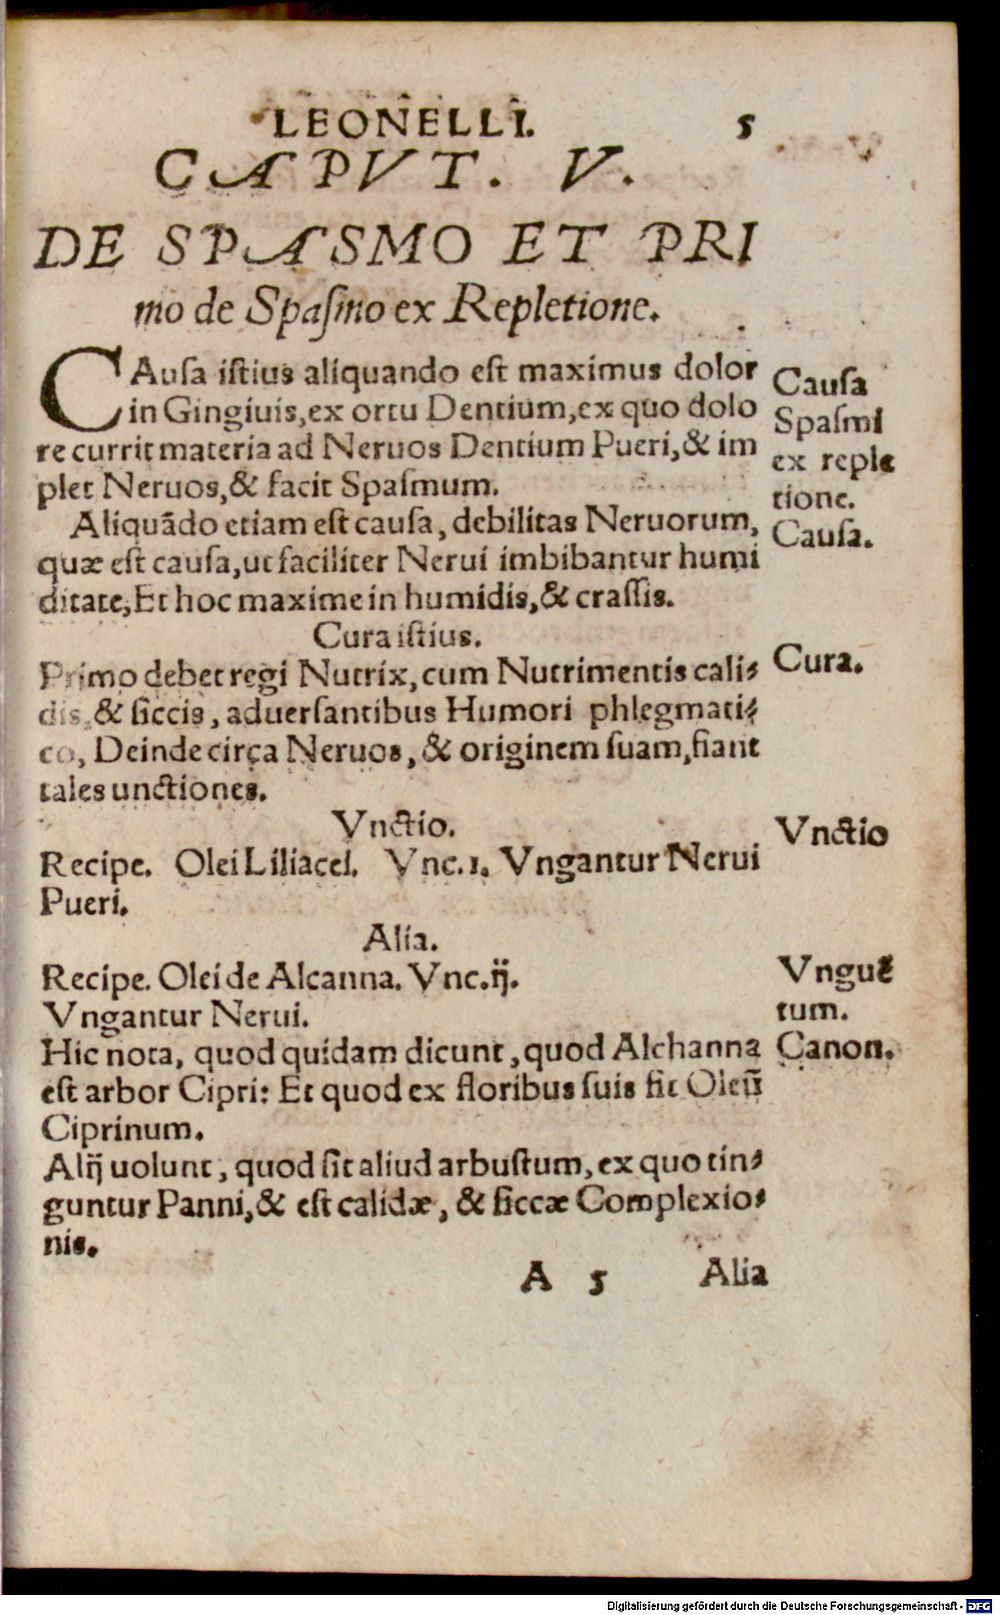 LEONELLI. 5
CAPVT. V.
DE SPASMO ET PRI
mo de Spaſmo ex Repletione.
CAuſa iſtius aliquando eſt maximus dolor
in Gingiuis, ex ortu Dentium, ex quo dolo
re currit materia ad Neruos Dentium Pueri, & im
plet Neruos, & facit Spaſmum.
Causa
Spaſmi
ex reple
tione.
Aliquãdo etiam eſt cauſa, debilitas Neruorum,
quæ eſt cauſa, ut faciliter Nerui imbibantur humi
ditate, Et hoc maxime in humidis, & craſſis.
Cauſa.
Cura iſtius.
Primo debet regi Nutrix, cum Nutrimentis cali⸗
dis, & ſiccis, aduerſantibus Humori phlegmati⸗
co, Deinde circa Neruos, & originem ſuam, fiant
tales unctiones.
Cura.
Vnctio.
Recipe. Olei Liliacei. Vnc. 1. Vngantur Nerui
Pueri.
Vnctio
Alia.
Recipe. Olei de Alcanna. Vnc. ij.
Vngantur Nerui.
Vnguẽ
tum.
Hic nota, quod quidam dicunt, quod Alchanna
eſt arbor Cipri: Et quod ex floribus ſuis fit Oleũ
Ciprinum.
Canon.
Alij uolunt, quod ſit aliud arbuſtum, ex quo tin⸗
guntur Panni, & eſt calidæ, & ſiccæ Complexio⸗
nis.
A 5 Alia
Digitalisierung gefördert durch die Deutsche Forschungsgemeinschaft - DFG